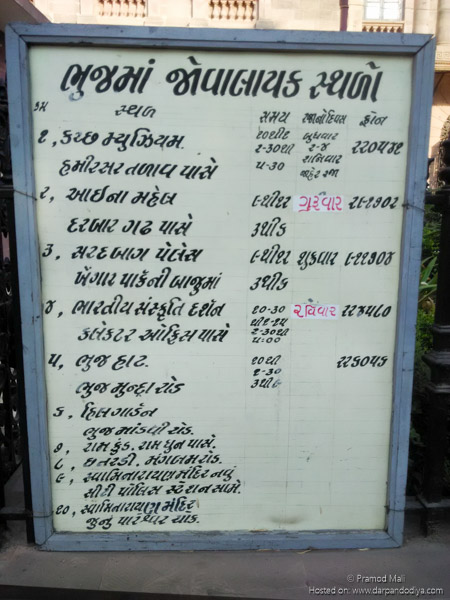 ભુજમાં જોવાલાયક સ્થળો
ક્રમ સ્થળ સમય રજાનો દિવસ ફોન
૧, કચ્છ મ્યુઝિયમ. ૧૦થી૧ બુધવાર
૨-૩૦થી ૨-૪ ૨૨૦૫૪૧
હમીરસર તળાવ પાસે ૫-૩૦ શનિવાર
જાહેર રજા
૨, આઈના મહેલ ૯થી૧૨ ગુરૂવાર ૨૯૧૭૦૨
દરબાર ગઢ પાસે ૩થી૬
૩, સરદબાગ પેલેસ ૯થી૧૨ શુક્રવાર ૯૧૧૭૦૪
ખેંગાર પાર્કની બાજુમાં ૩થી૬
૪, ભારતીય સંસ્કૃતિ દર્શન ૧૦-૩૦ રવિવાર ૨૨૪૫૮૦
થી૧-૧૫
કલેક્ટર ઓફિસ પાસે ૨-૩૦થી
૫:૦૦
૫, ભુજ હાટ. ૧૦થી ૨૨૩૦૫૬
૧-૩૦
ભુજ મુન્દ્રા રોડ ૩થી૮
૬, હિલ ગાર્ડન
ભુજ માંડવી રોડ.
૭, રામ કુંડ. રામ ધુન પાસે.
૮, છતરડી, મંગલમ રોડ.
૯, સ્વામિનારાયણ મંદિર નવું
સીટી પોલિસ સ્ટેશન સામે.
૧૦, સ્વામિનારાયણ મંદિર
જુનું
ચોક.
© Pramod Mali
Hosted on: www.darpandodiya.com